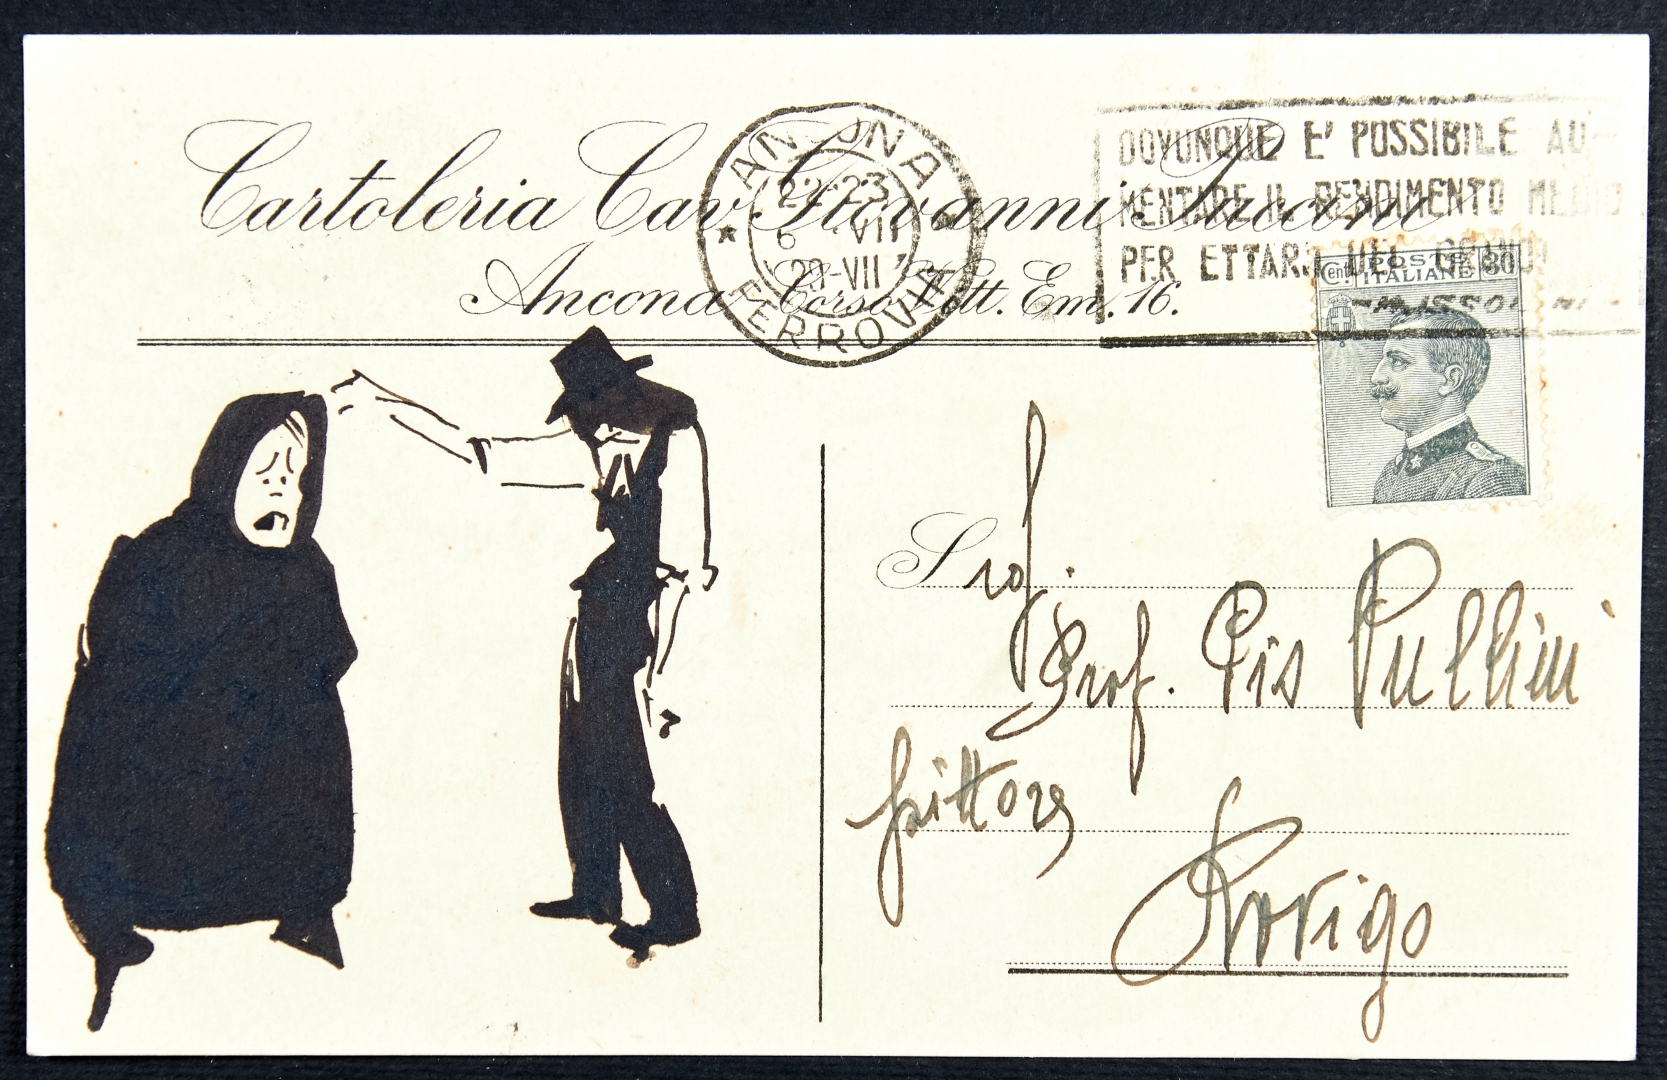 Cartoleria Cav. Giovanni
Ancona - Corso Vitt. Em. 16.
ANCONA
22-23
6 VII
20-VII
FERROVIA
DOVUNQUE E' POSSIBILE AU-
MENTARE IL RENDIMENTO MEDIO
PER ETTARO DEL GRANO
MUSSOLINI
Cent. POSTE 30
ITALIANE
Prof. Pio Pullini
pittore
Rovigo